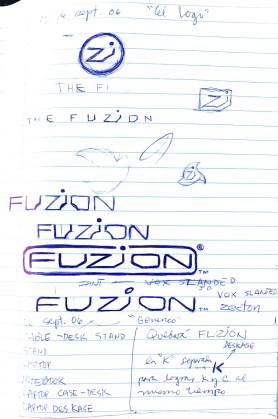 sept. 06 "el logo"
Zi
THE FI
THE FUZION
Zi
FUZION
FUZION
FUZION®
TM
FONT VOX SLANDED
FUZION TM VOX SLANTED
zecton
sept. 06 "Generico"
-DESK STAND
STAND
NOTEBOOK
LAPTOP CASE-DESK
LAPTOP DESKASE
Quedará FUZION
DESKASE
la "K" separada K
para lograr K y C al
mismo tiempo